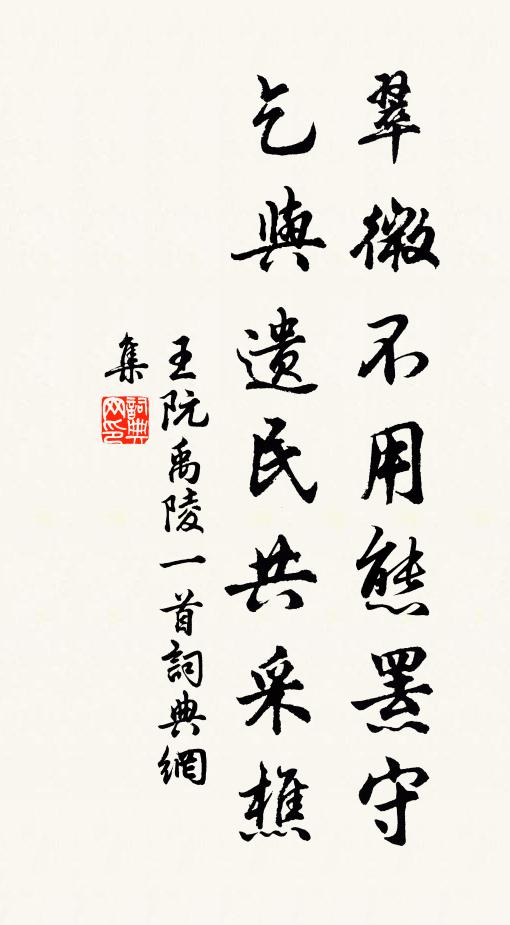 翠微不用熊羆守
乞與遺民共采樵
王阮禹陵一首詞典網
集
詞典
网印